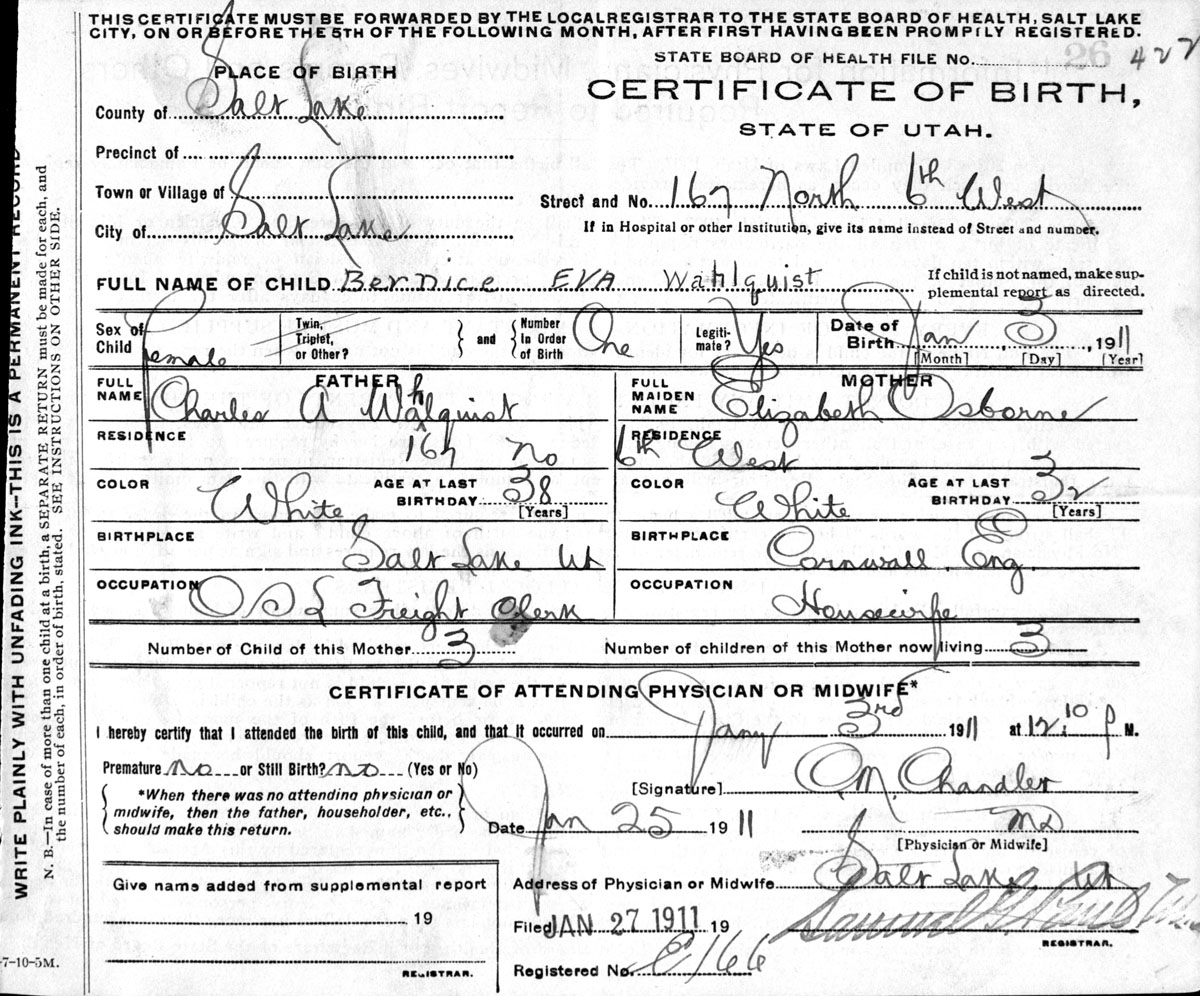 THIS CERTIFICATE MUST BE FORWARDED BY THE LOCAL REGISTRAR TO THE STATE BOARD OF HEALTH, SALT LAKE
CITY, ON OR BEFORE THE 5TH OF THE FOLLOWING MONTH, AFTER FIRST HAVING BEEN PROMPTLY REGISTERED.
STATE BOARD OF HEALTH FILE NO. 26 427
PLACE OF BIRTH
CERTIFICATE OF BIRTH,
STATE OF UTAH.
County of Salt Lake
Precinct of
Town or Village of
Street and No. 167 North 6th West
City of Salt Lake
If in Hospital or other Institution, give its name instead of Street and number.
FULL NAME OF CHILD Bernice EVA Wahlquist
If child is not named, make sup-
plemental report as directed.
Sex of Child female
Twin, Triplet, or Other?
and
Number In Order of Birth One
Legiti- mate? Yes
Date of Birth Jan 3, 1911
[Month] [Day] [Year]
FATHER
FULL NAME Charles A Walquist h
MOTHER
FULL MAIDEN NAME Elizabeth Osborne
RESIDENCE 167 No
RESIDENCE 6th West
COLOR White
AGE AT LAST BIRTHDAY 38 [Years]
COLOR White
AGE AT LAST BIRTHDAY 32 [Years]
BIRTHPLACE Salt Lake Ut
BIRTHPLACE Cornwall Eng.
OCCUPATION OSL Freight Clerk
OCCUPATION Housewife
Number of Child of this Mother 3
Number of children of this Mother now living 3
CERTIFICATE OF ATTENDING PHYSICIAN OR MIDWIFE*
I hereby certify that I attended the birth of this child, and that it occurred on Jany 3rd 1911 at 12:10 P M.
Premature No or Still Birth? No (Yes or No)
[Signature] O.M. Chandler
*When there was no attending physician or
midwife, then the father, householder, etc.,
should make this return.
Date Jan 25 1911
MD
[Physician or Midwife]
Give name added from supplemental report
19
REGISTRAR.
Address of Physician or Midwife Salt Lake Ut
Filed JAN 27 1911 19
Samuel G
REGISTRAR.
Registered No. E166
7-10-5M.
WRITE PLAINLY WITH UNFADING INK—THIS IS A PERMANENT RECORD
N. B.—In case of more than one child at a birth, a SEPARATE RETURN must be made for each, and
the number of each, in order of birth, stated. SEE INSTRUCTIONS ON OTHER SIDE.